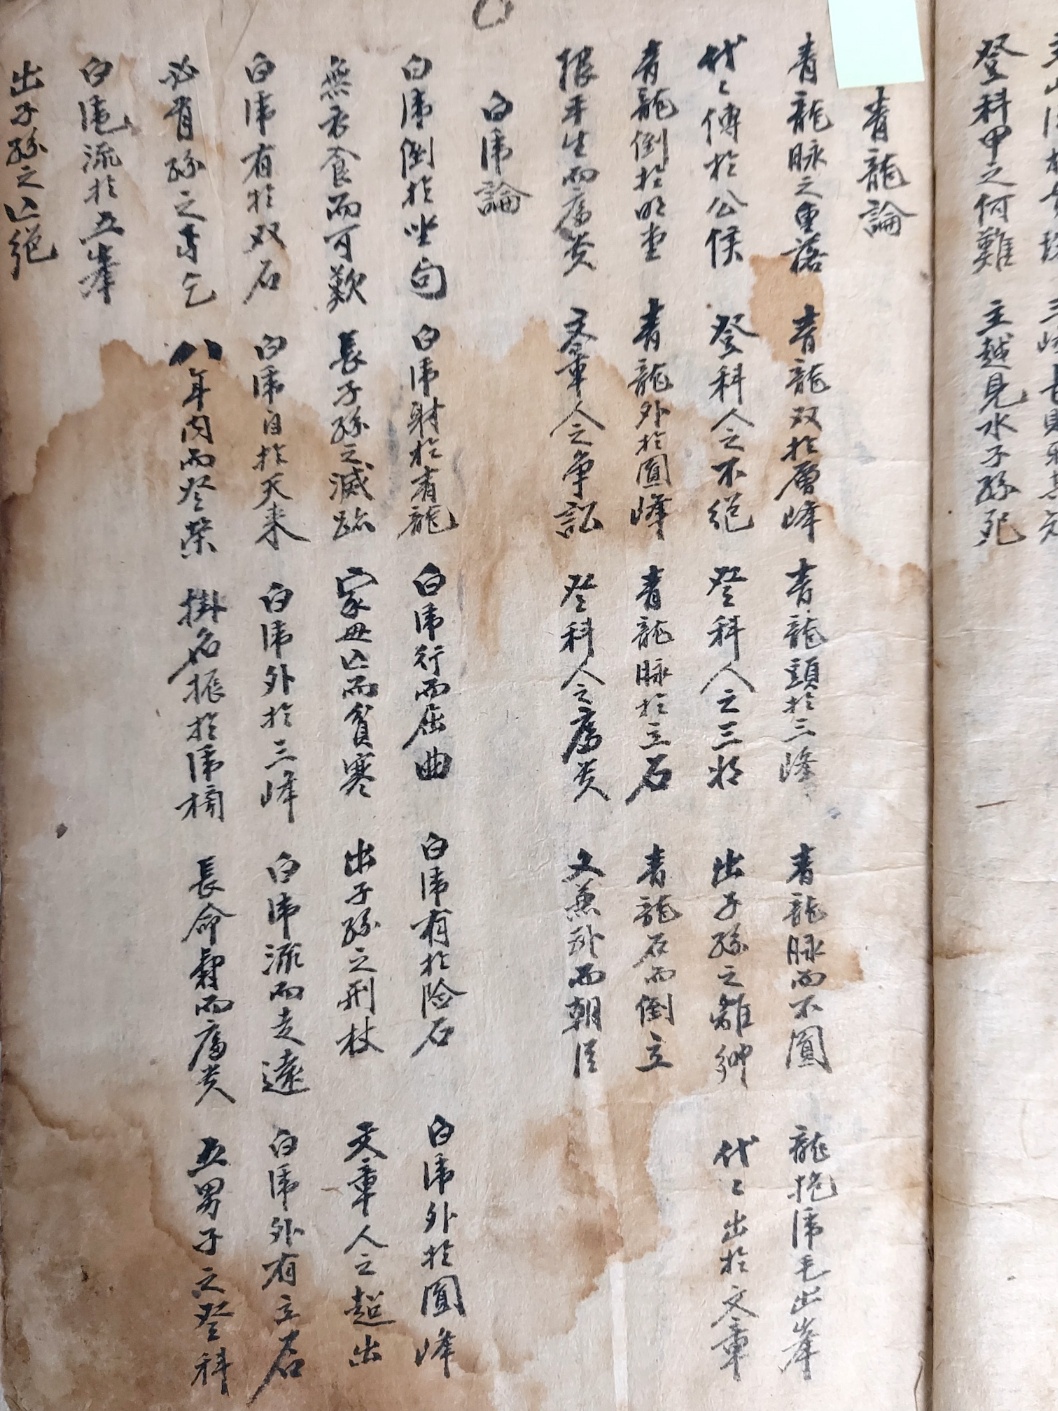 登科甲之何難 主越見水子孫死
青龍論
青龍脉之重落 青龍双於層峰 青龍頭於三峰 青龍脉而不圓 龍抱虎毛出峯
代々傳於公侯 登科人之不絕 登科人之三 出子孫之離鄉 代々出於文章
青龍倒於明堂 青龍外於圓峰 青龍脉於立石 青龍石而倒立
限平生而富貴 文章人之爭訟 登科人之富貴 文兼 而朝
白虎論
白虎倒於坐旬 白虎射於青龍 白虎行而屈曲 白虎有於險石 白虎外於圓峰
無衣食而可歎 長子孫之滅 家毋亡而貧寒 出子孫之刑杖 文章人之超出
白虎有於双石 白虎自於天来 白虎外於三峰 白虎流而走遠 白虎外有立石
必有孫之 乞 八年内而登榮 掛名振於虎榜 長命 而富貴 五男子之登科
白虎流於五峯
出子孫之亡絕